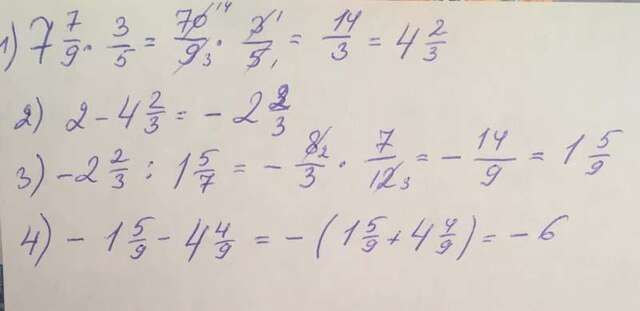 1) 7 7/9 · 3/5 = 70 14/9 3 · 3 1/5 1 = 14/3 = 4 2/3
2) 2 - 4 2/3 = - 2 2/3
3) - 2 2/3 : 1 5/7 = - 8 2/3 · 7/12 3 = - 14/9 = 1 5/9
4) - 1 5/9 - 4 4/9 = - (1 5/9 + 4 4/9) = - 6